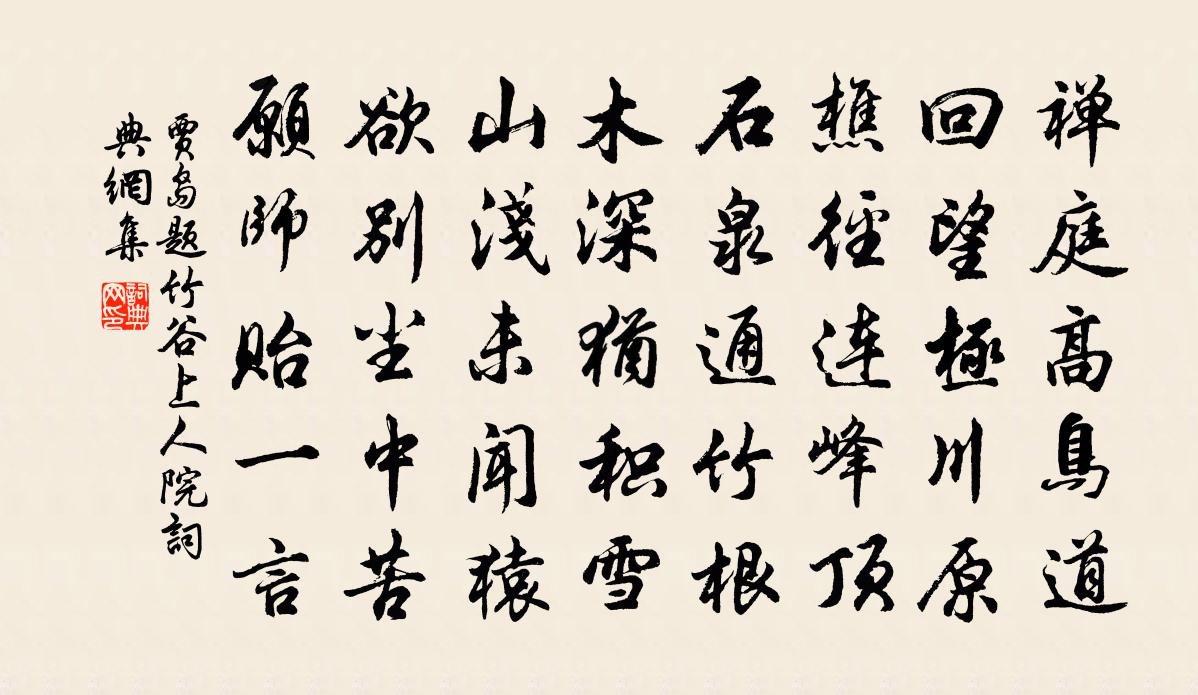 禅庭高鳥道
回望極川原
樵径連峰頂
石泉通竹根
木深猶积雪
山淺未聞猿
欲别坐中苦
願师貽一言
賈島題竹谷上人院詞
典網集
詞典网印